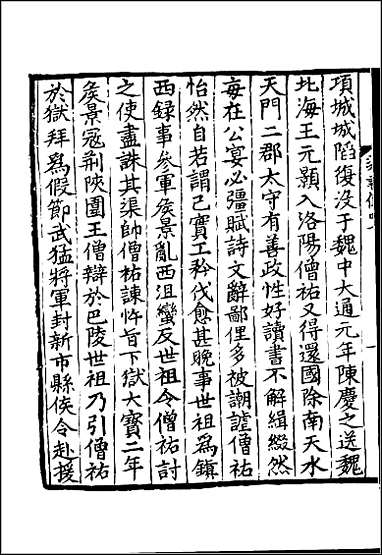 項城城陷復没于魏中大通元年陳慶之送魏
北海王元顥入洛陽僧祐又得還國除南天水
天門二郡太守有善政性好讀書不解緝綴然
每在公宴必彊賦詩文辭鄙俚多被謿謔僧祐
怡然自若謂己實工矜伐愈甚晚事世祖爲鎮
西録事參軍侯景亂西沮蠻反世祖令僧祐討
之使盡誅其渠帥僧祐諫忤旨下獄大寶二年
侯景寇荆陝圍王僧辯於巴陵世祖乃引僧祐
於獄拜爲假節武猛將軍封新市縣侯令赴援